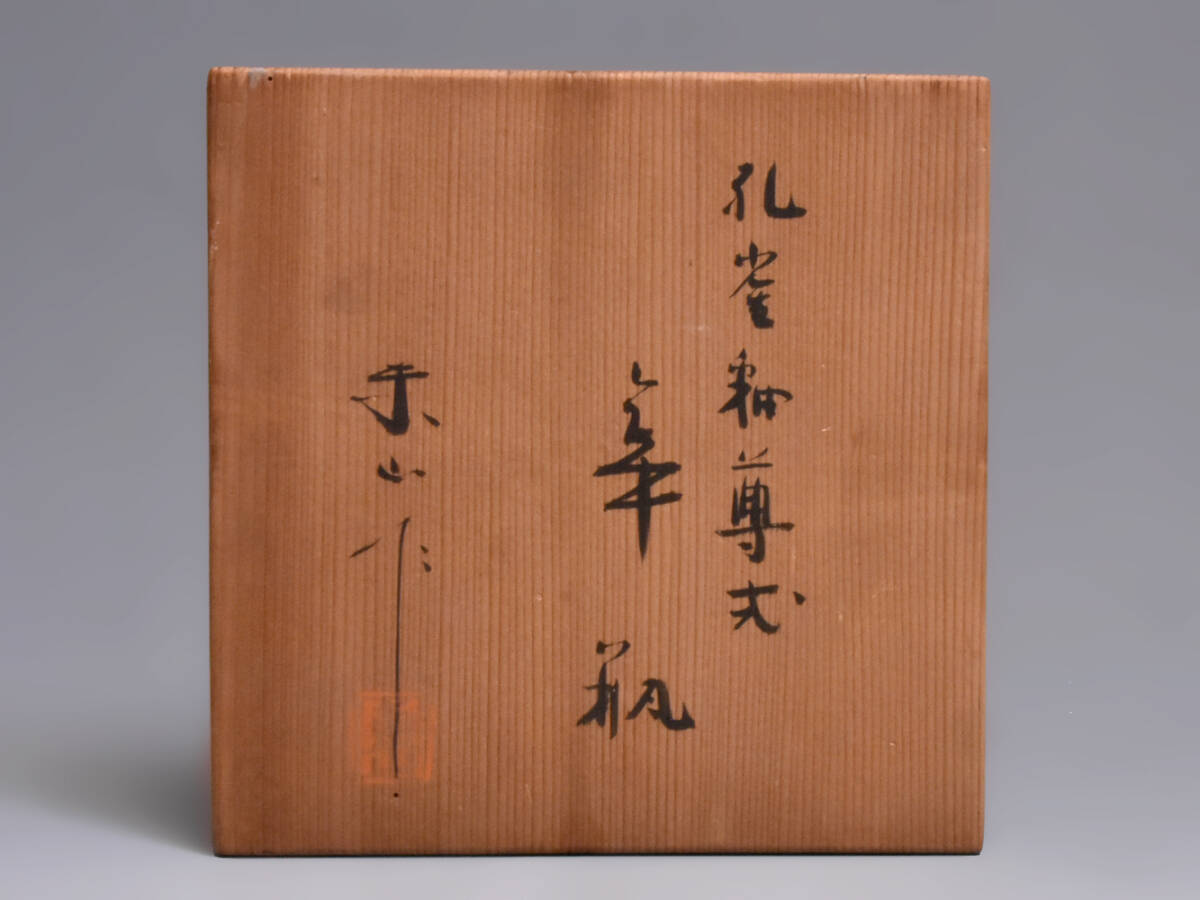 孔雀釉尊式
華瓶
山作